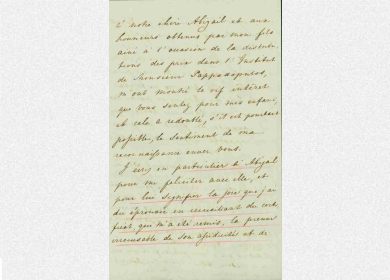 à notre chère Abigail et aux
honneurs obtenus par mon fils
ainé à l'occasion de la distribu-
tions des prix dans l'Institut
de Monsieur Pappadopoulos,
m'ont montré le vif intérêt
que vous sentez pour mes enfans,
et cela a redoublé, s'il est pourtant
possible, le sentiment de ma
reconnaissance envers vous.
J'écris en particulier à Abigail
pour me feliciter avec elle, et
pour lui signifier la joie que j'ai
du éprouver en recevant le certi-
ficat qui m'a été remis, la preuve
irrecusable de son assiduité et de